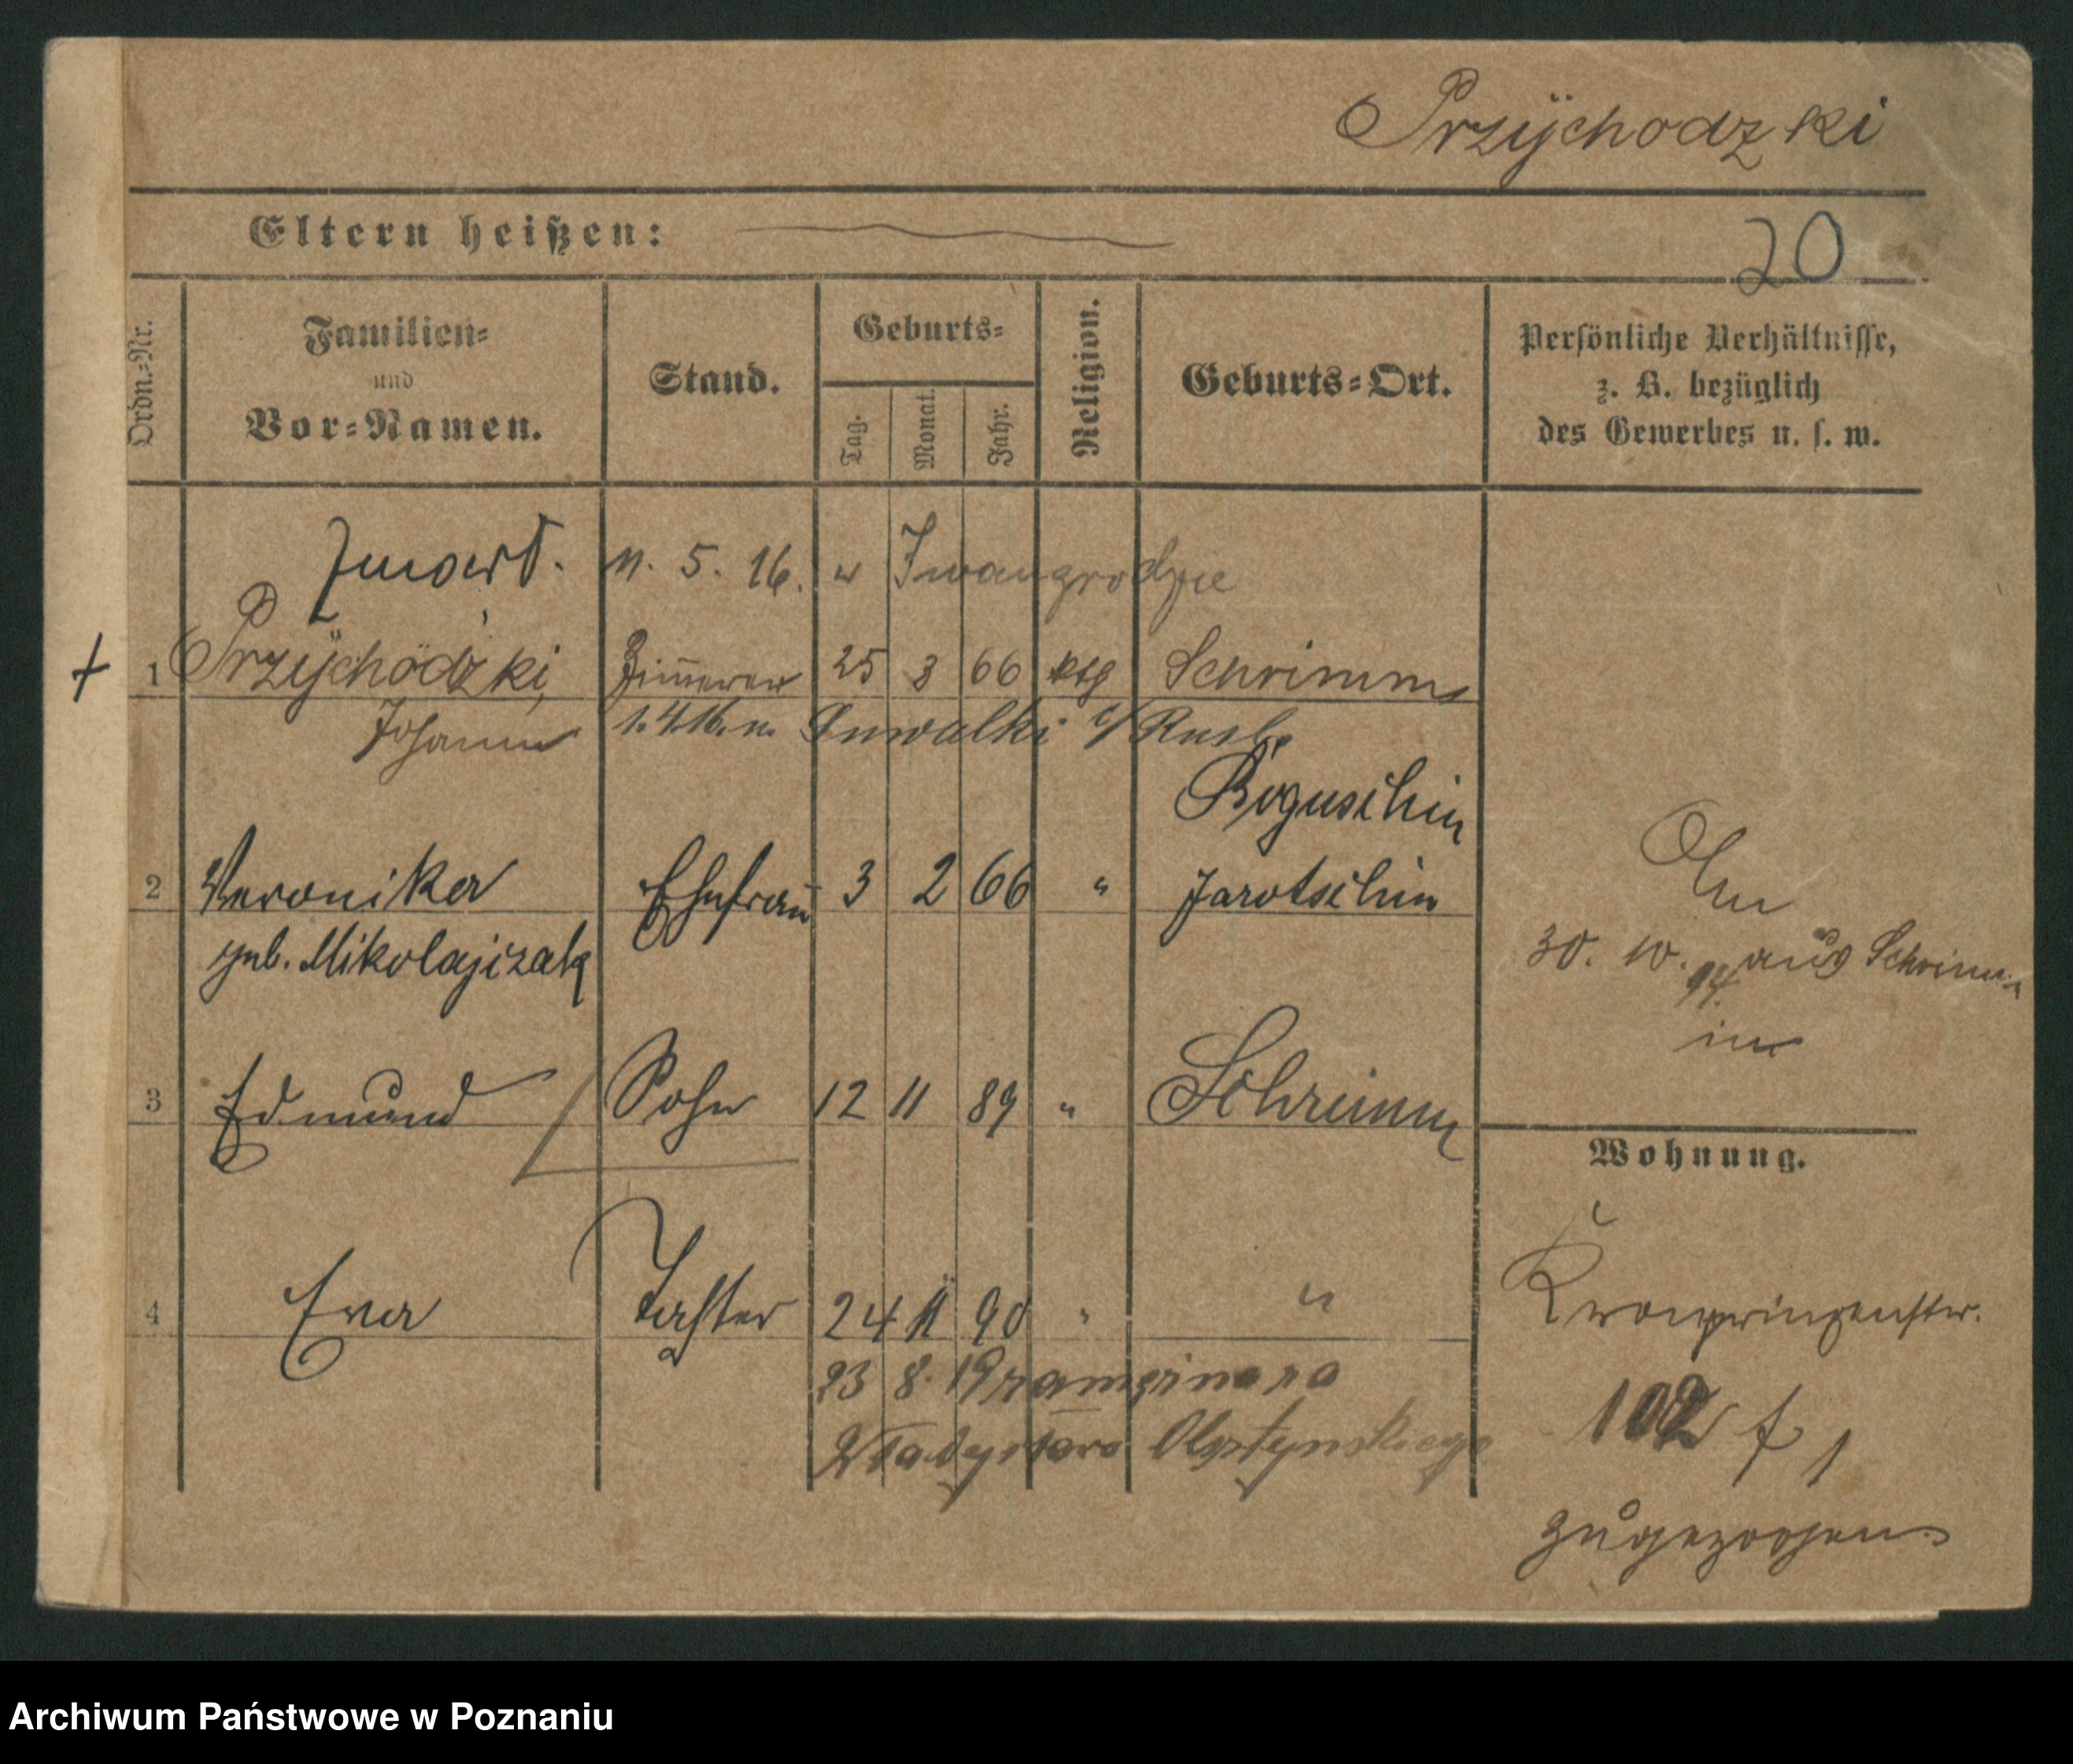 Przÿchodzki
Eltern heißen:
20
Ordn.-Nr.
Familien-
und
Vor-Namen.
Stand.
Geburts-
Tag.
Monat.
Jahr.
Religion.
Geburts-Ort.
Persönliche Verhältnisse,
z. B. bezüglich
des Gewerbes u. s. w.
Zmarł. 11. 5. 16. w Iwangrodzie
+ 1 Przÿchodzki, 25 3 66 ktl Schrimm
Johann 1.4.16. n. Suwalki i/Rusl.
Boguschin
2 Veronika Ehefrau 3 2 66 " Jarotschin
geb. Mikolajczak
30. 10. 94 aus Schrimm
3 Edmund Sohn 12 11 89 " Schrimm
Wohnung.
4 Eva Tochter 24 11 90 " "
Kronprinzenstr.
23 8. 19 zamężna za
Władysława Olsztynskiego
102
zugezogen.
Archiwum Państwowe w Poznaniu